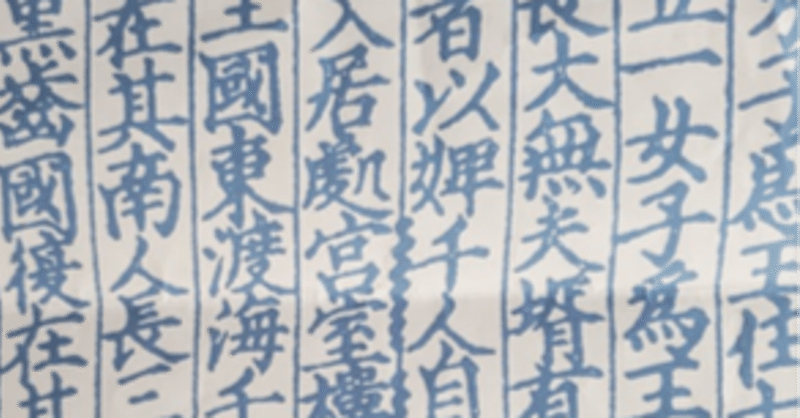 子為王住七
立一女子為王
長大無夫壻有
者以婢千人自
入居處宮室樓
王國東渡海千
在其南人長三
黑齒國復在其